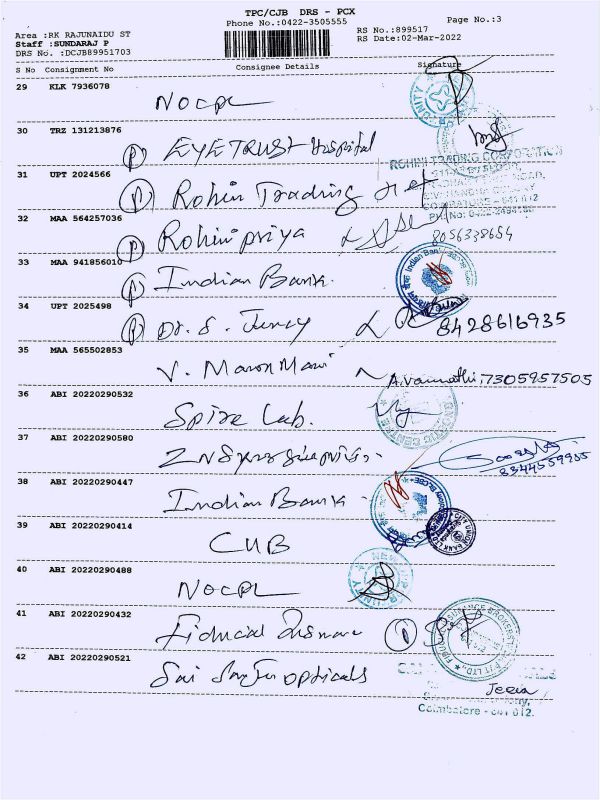 TPC/CJB DRS - PCX
Phone No.:0422-3505555
Page No.:3
Area :RK RAJUNAIDU ST
Staff :SUNDARAJ P
DRS No. :DCJB89951703
RS No.:899517
RS Date:02-Mar-2022
S No Consignment No Consignee Details Signature
29 KLK 7936078
NOCPL
30 TRZ 131213876
EYE TRUST Hospital
31 UPT 2024566
Rohini Trading
ROHINI TRADING CORPORATION
32 MAA 564257036
Rohini priya
8056338654
33 MAA 941856010
Indian Bank.
34 UPT 2025498
Dr. S. Jency
8428616935
35 MAA 565502853
7305957505
36 ABI 20220290532
Spire Lab.
37 ABI 20220290580
8344559955
38 ABI 20220290447
Indian Bank
39 ABI 20220290414
CUB
40 ABI 20220290488
NOCPL
41 ABI 20220290432
42 ABI 20220290521
Sai opticals
Jeeva
Coimbatore - 641 012.